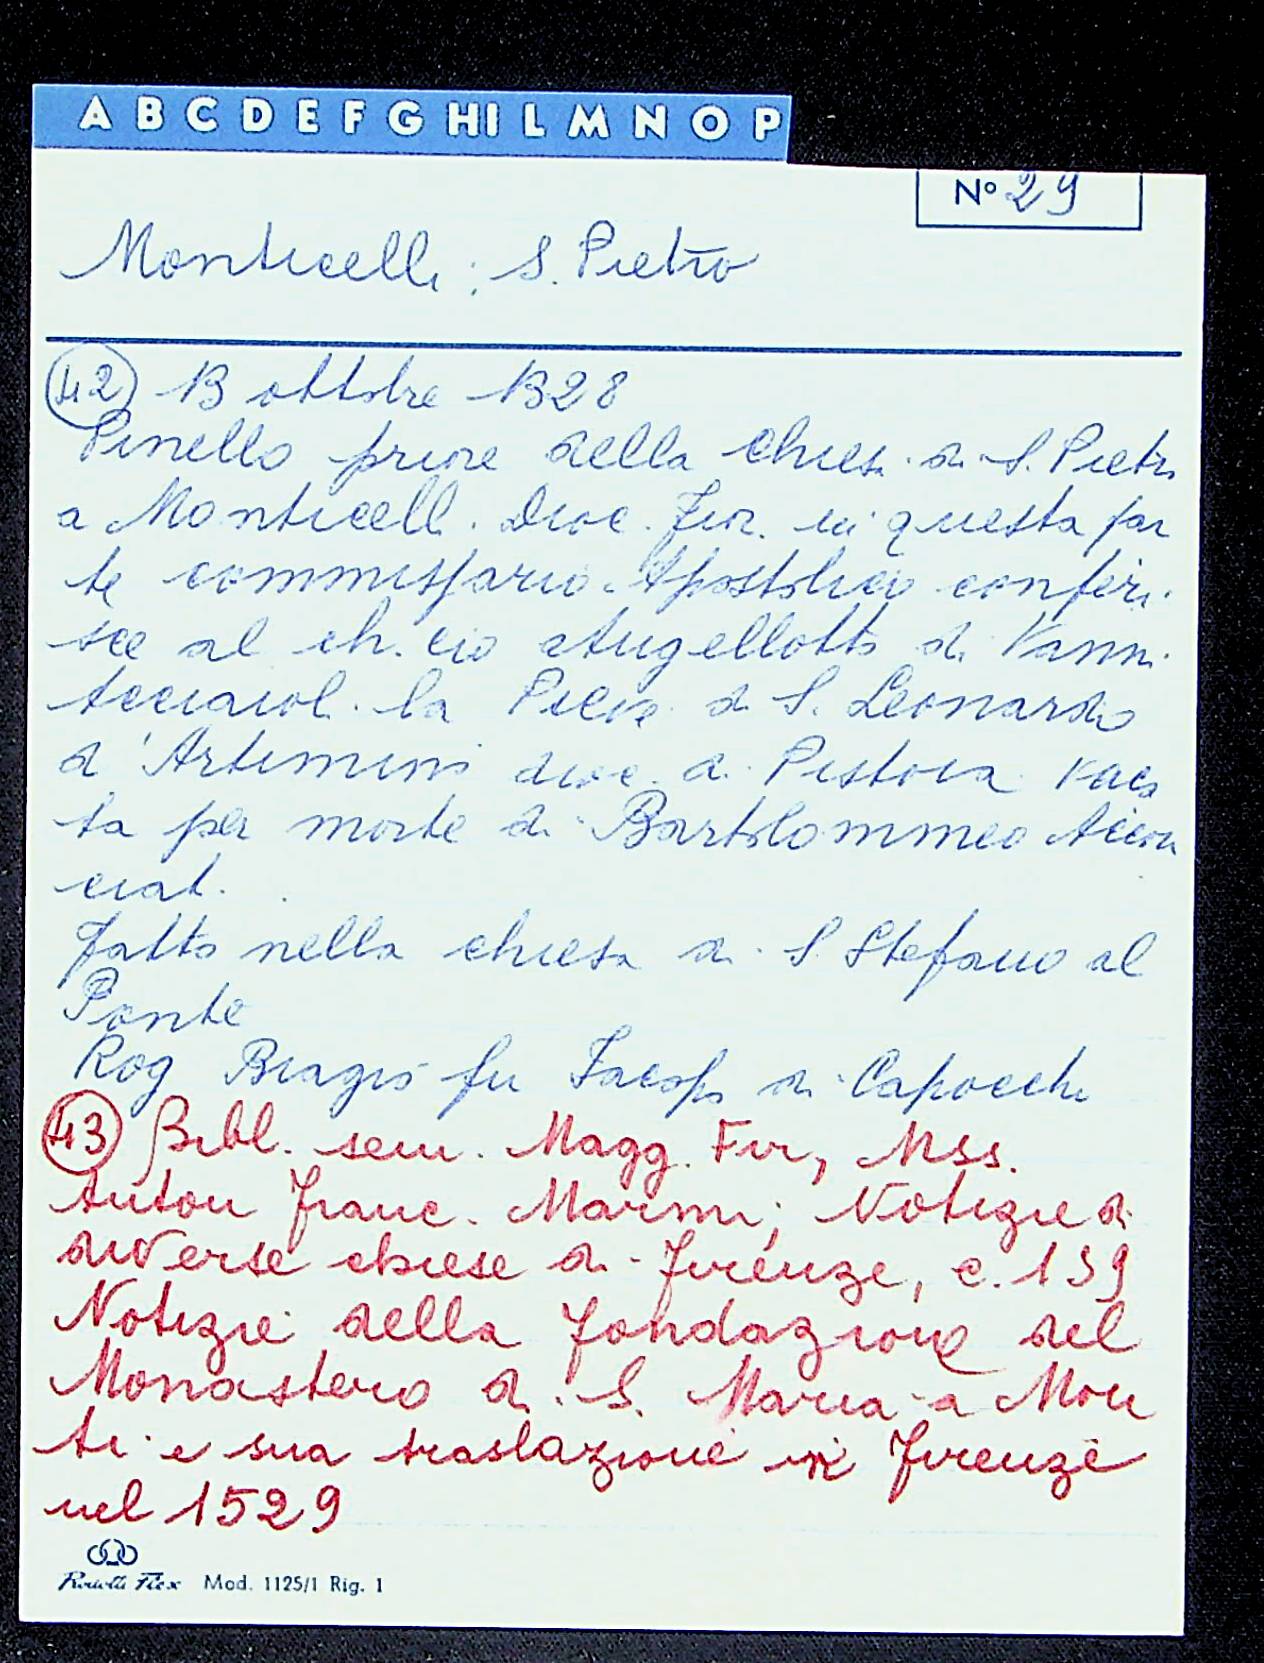 A B C D E F G HI L M N O P
N° 29
Monticelli; S. Pietro
42 13 ottobre 1328
Pinello priore della chiesa di S. Pietro
a Monticelli. Dioc. Fior. in questa par
te commissario Apostolico conferi.
sce al ch.cio Angellotto di Vanni
Acciaioli la Pieve di S. Leonardo
d'Artimino dioc. di Pistoia vaca
ta per morte di Bartolommeo
ciat.
Fatto nella chiesa di S. Stefano al
Ponte
Rog Biagio fu Jacopo di Capocchi
43 Bibl. sem. Magg. Fir, Mss.
Anton Franc. Marmi; Notizie di
diverse chiese di Firenze, c. 139
Notizie della fondazione del
Monastero di S. Maria a Mon
ti e sua traslazione in Firenze
nel 1529
Flex Mod. 1125/1 Rig. 1